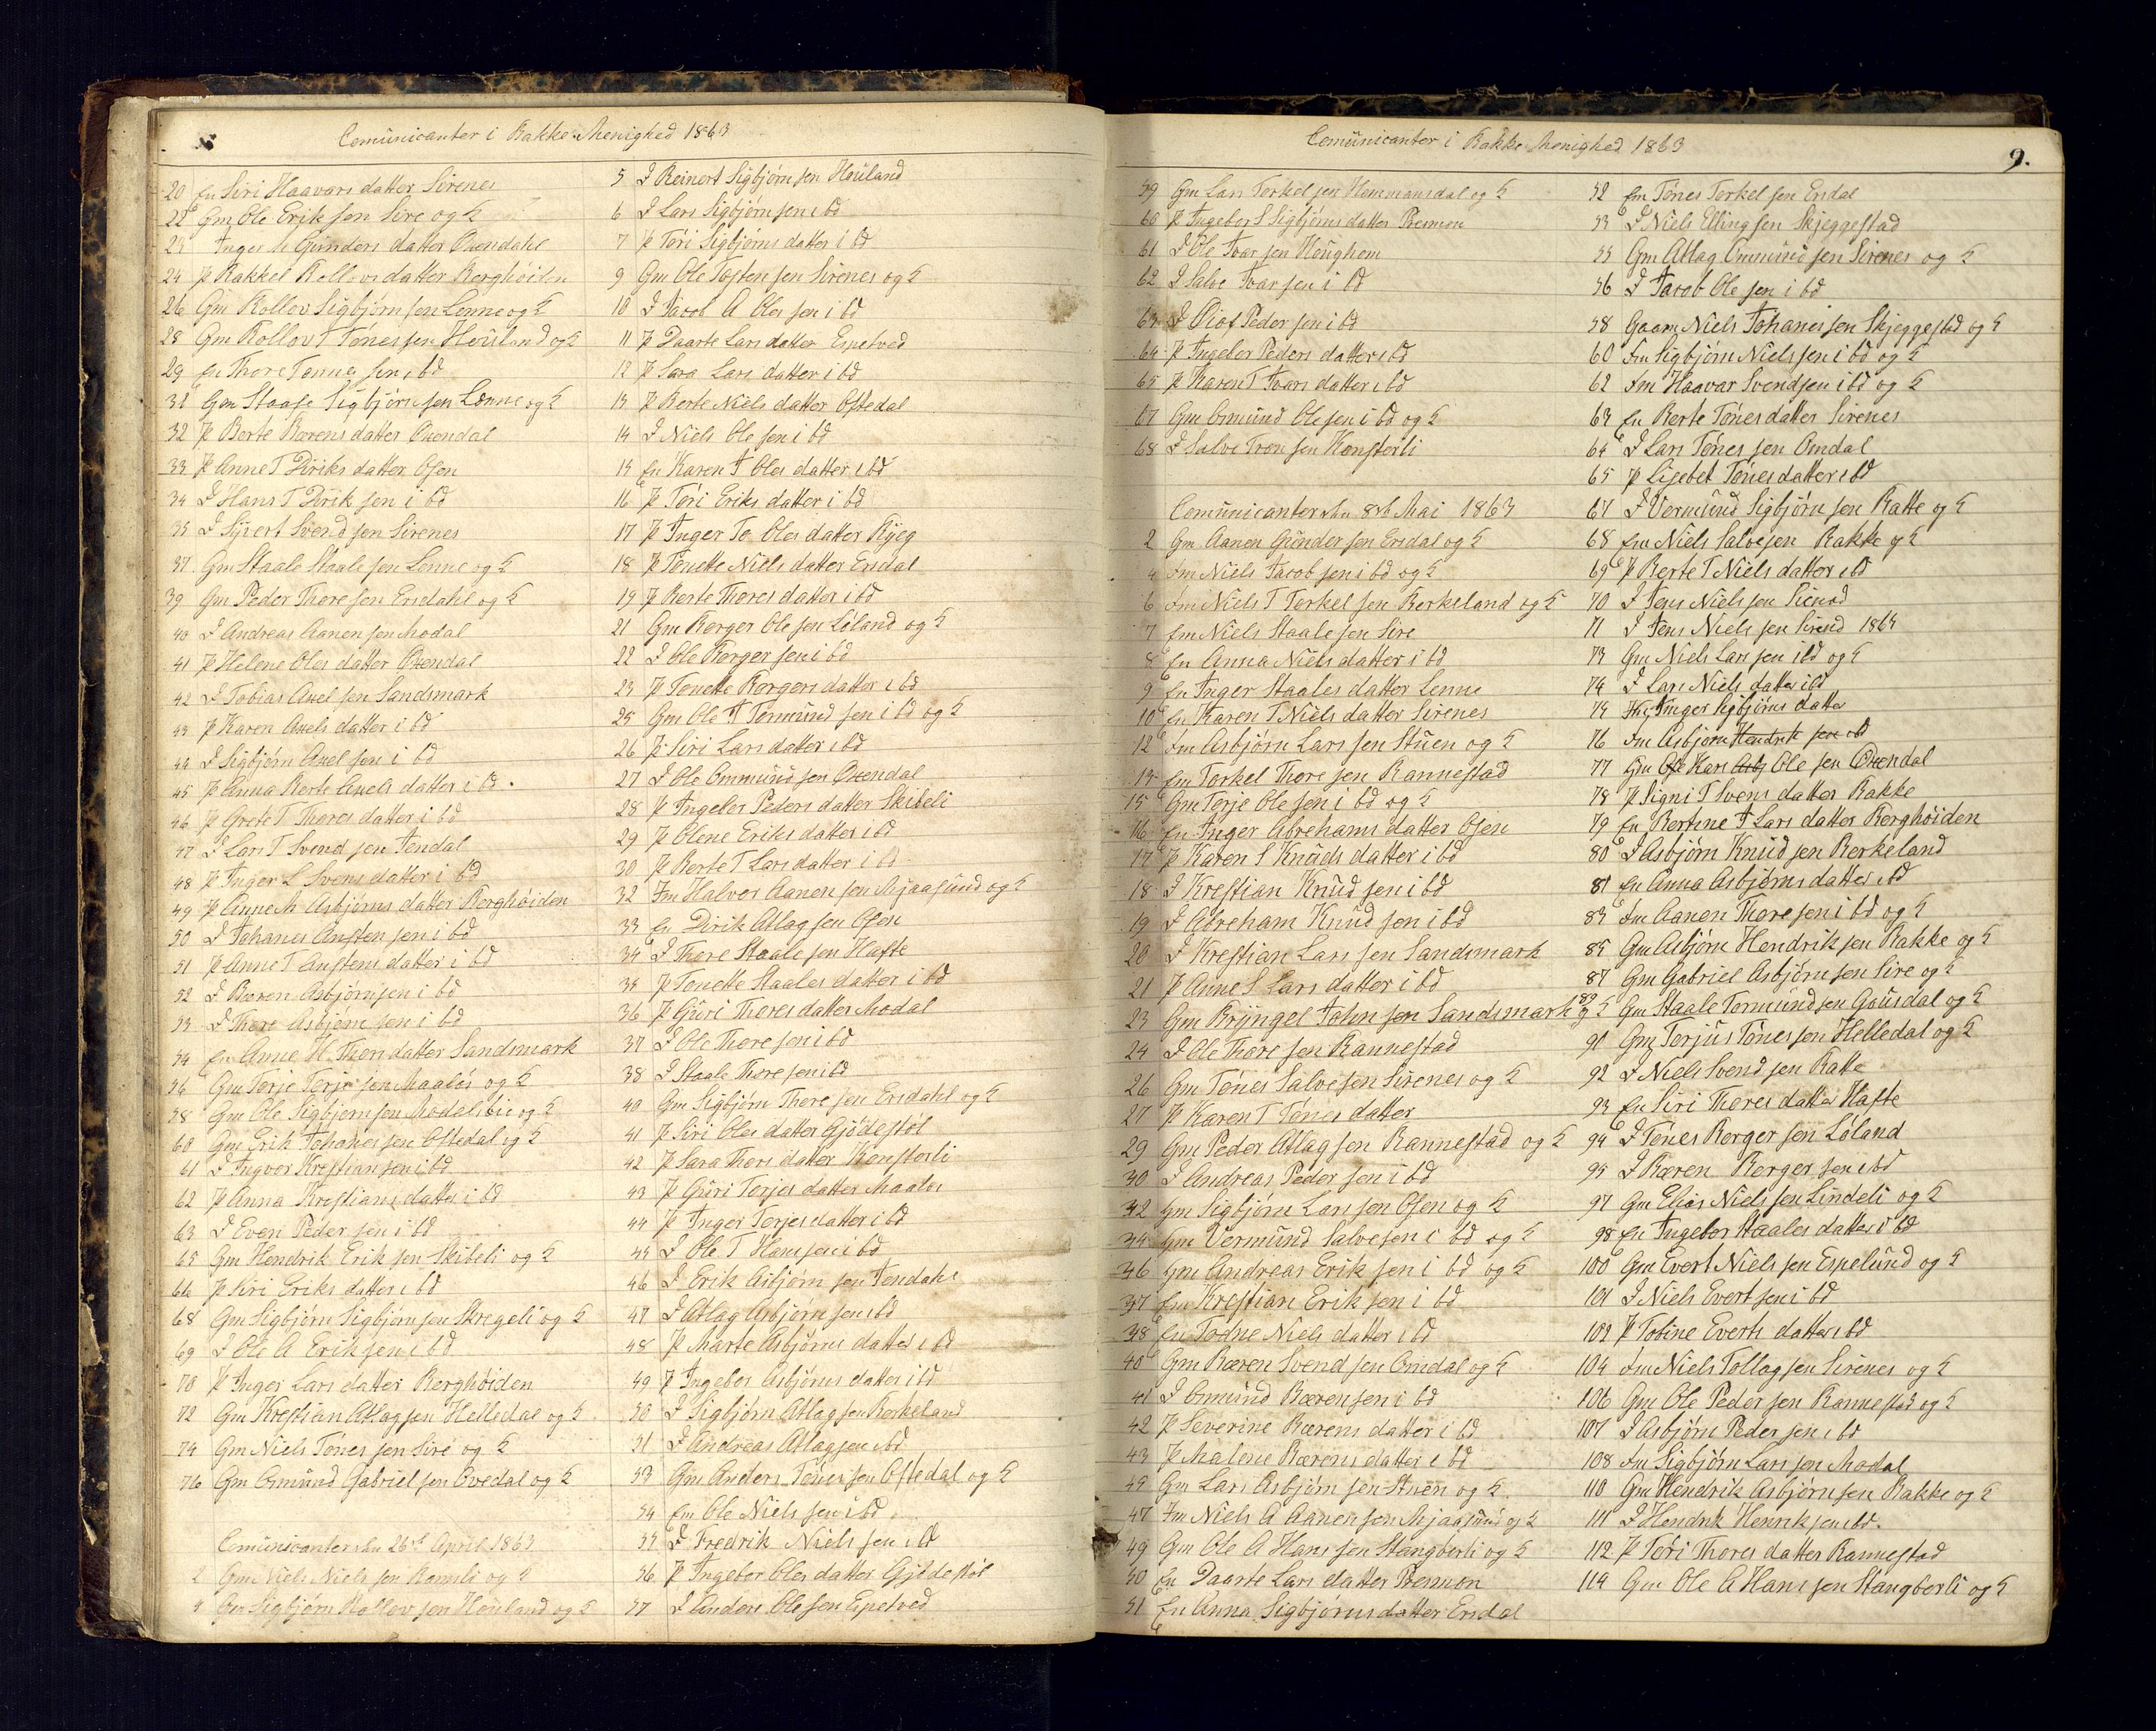 Comünicanter i Bakke Menighed 1863
20 En Siri Haavars datter Sirenes
22 Gm Ole Erik sen Sire og K
23 Inger M Günders datter Oxendahl
24 P Rakkel Rollovs datter Berghöiden
26 Gm Rollov Sigbjörn sen Lonne og K
28 Gm Rollov T Tönes sen Höüland og K
29 En Thore Tönnes sen ibd
31 Gm Staale Sigbjörn sen Lonne og K
32 P Berte Bærens datter Oxendal
33 P Anne T Diriks datter Osen
34 I Hans T Dirik sen i bd
35 I Syvert Svend sen Sirenes
37 Gm Staale Staale sen Lonne og K
39 Gm Peder Thore sen Ersdahl og K
40 I Andreas Aanen sen Modal
41 P Helene Oles datter Oxendal
42 I Tobias Axel sen Sandsmark
43 P Karen Axels datter i bd
44 I Sigbjörn Axel sen i bd
45 P Anna Berte Axels datter i bd.
46 P Grete T Thores datter i bd
47 I Lars T Svend sen Jendal
48 P Inger L Svens datter i bd
49 P Anne M Asbjörns datter Berghöiden
50 I Johanes Ansten sen i bd
51 P Anne T Anstens datter i bd
52 I Bæren Asbjörnsen i bd
53 I Thore Asbjörn sen i bd
54 En Anne M. Thors datter Sandsmark
56 Gm Terje Terje sen Maalös og K
58 Gm Ole Sigbjörn sen Modalsbie og K
60 Gm Erik Johanes sen Oftedal og K
61 I Ingvor Krestian sen i bd
62 P Anna Krestians datter i bd
63 I Even Peder sen i bd
65 Gm Hendrik Erik sen Skibeli og K
66 P Siri Eriks datter ibd
68 Gm Sigbjörn Sigbjörn sen Skregeli og K
69 I Ole A Erik sen i bd
70 P Inger Lars datter Berghöiden
72 Gm Krestian Atlag sen Helledal og K
74 Gm Niels Tönes sen Sire og K
76 Gm Omünd Gabriel sen Ovedal og K
Comünicanter den 26de April 1863
2 Gm Niels Niels sen Ramsli og K
4 Gm Sigbjörn Rollov sen Höuland og K
5 I Reinert Sigbjörn sen Höuland
6 I Lars Sigbjörn sen ibd
7 P Töri Sigbjörns datter i bd
9 Gm Ole Tosten sen Sirenes og K
10 I Jacob A Oles sen i bd
11 P Daarte Lars datter Espetved
12 P Sara Lars datter i bd
13 P Berte Niels datter Oftedal
14 I Niels Ole sen i bd
15 En Karen J Oles datter ibd
16 P Töri Eriks datter i bd
17 P Inger Te Oles datter Rÿeg
18 P Tonette Niels datter Ersdal
19 P Berte Thores datter i bd
21 Gm Börger Ole sen Löland og K
22 I Ole Börger sen i bd
23 P Tonette Börgers datter ibd
25 Gm Ole J Tormünd sen i bd og K
26 P Siri Lars datter ibd
27 I Ole Ommünd sen Oxendal
28 P Ingebor Peders datter Skibeli
29 P Olene Eriks datter i bd
30 P Berte T Lars datter i bd
32 Fm Halvor Aanen sen Mjaasünd og K
33 En Dirik Atlag sen Osen
34 I Thore Staale sen Hafte
35 P Tonette Staales datter i bd
36 P Güri Thores datter Modal
37 I Ole Thore sen i bd
38 I Staale Thore sen i bd
40 Gm Sigbjörn Thore sen Ersdahl og K
41 P Siri Oles datter Gjödestöl
42 P Sara Thors datter Konsterli
43 P Güri Terjes datter Maalös
44 P Inger Terjes datter i bd
45 I Ole T Hans sen i bd
46 I Erik Asbjörn sen Jendahl
47 I Atlag Asbjörn sen ibd
48 P Marte Asbjörns datter ibd
49 P Ingebor Asbjörns datter ibd
50 I Sigbjörn Atlag sen Berkeland
51 I Andreas Atlag sen ibd
53 Gm Anders Tönes sen Oftedal og K
54 Em Ole Niels sen i bd
55 I Fredrik Niels sen ibd
56 P Ingebor Oles datter Gjödestöl
57 I Anders Ole sen Espetved
Comünicanter i Bakke Menighed 1863
9.
59 Gm Lars Torkel sen Hommansdal og K
60 P Ingebor S Sigbjörns datter Bremon
61 I Ole Ivar sen Höughom
62 I Salve Ivar sen i bd
63 I Olof Peder sen i bd
64 P Ingebor Peders datter ibd
65 P Karen T Ivars datter ibd
67 Gm Omünd Ole sen i bd og K
68 I Salve Tron sen Konsterli
Comünicanter den 8de Mai 1863
2 Gm Aanen Günder sen Ersdal og K
4 Fm Niels Jacob sen i bd og K
6 Fm Niels T Torkel sen Berkeland og K
7 Em Niels Staale sen Sire
8 En Anna Niels datter i bd
9 En Inger Staales datter Lonne
10 En Karen T Niels datter Sirenes
12 Fm Asbjörn Lars sen Stüen og K
13 Em Torkel Thore sen Rannestad
15 Gm Terje Ole sen i bd og K
16 En Inger Abrehams datter Osen
17 P Karen S Knüds datter i bd
18 I Krestian Knüd sen i bd
19 I Abreham Knüd sen i bd
20 I Krestian Lars sen Sandsmark
21 P Anne S Lars datter i bd
23 Gm Brÿngel John sen Sandsmark og K
24 I Ole Thore sen Rannestad
26 Gm Tönes Salve sen Sirenes og K
27 P Karen T Tönes datter
29 Gm Peder Atlag sen Rannestad og K
30 I Andreas Peder sen i bd
32 Gm Sigbjörn Lars sen Osen og K
34 Gm Vermünd Salvesen i bd og K
36 Gm Andreas Erik sen i bd og K
37 Em Krestian Erik sen i bd
38 En Todne Niels datter ibd
40 Gm Bæren Svend sen Omdal og K
41 I Omünd Bæren sen i bd
42 P Severine Bærens datter i bd
43 P Malene Bærens datter i bd
45 Gm Lars Asbjörn sen Stuen og K
47 Fm Niels A Aanen sen Mjaasünd og K
49 Gm Ole A Hans sen Stangberli og K
50 En Daarte Lars datter Bremon
51 En Anna Sigbjörns datter Ersdal
52 Em Tönes Torkel sen Ersdal
53 I Niels Elling sen Skjeggestad
55 Gm Atlag Ommünd sen Sirenes og K
56 I Jacob Ole sen i bd
58 Gaam Niels Johanes sen Skjeggestad og K
60 Fm Sigbjörn Niels sen i bd og K
62 Fm Haavar Svendsen i bd og K
63 En Berte Tönes datter Sirenes
64 I Lars Tönes sen Omdal
65 P Lisebet Tönes datter ibd
67 I Vermünd Sigbjörn sen Ratte og K
68 Em Niels Salvesen Bakke og K
69 P Berte T Niels datter ibd
70 I Jens Niels sen Sirnod
71 I Jens Niels sen Sirend 1864
73 Gm Niels Lars sen ibd og K
74 I Lars Niels datter ibd
75 Inger Sigbjörns datter
76 Fm Asbjörn Hendrik sen ibd
77 Gm Ole Hans Ole sen Oxendal
78 P Signi T Svens datter Bakke
79 En Bertine J Lars datter Berghöiden
80 I Asbjörn Knüd sen Berkeland
81 En Anna Asbjörns datter ibd
83 Fm Aanen Thore sen i bd og K
85 Gm Asbjörn Hendrik sen Bakke og K
87 Gm Gabriel Asbjörn sen Sire og K
89 Gm Staale Tormünd sen Gaüsdal og K
91 Gm Torjüs Tönes sen Helledal og K
92 I Niels Svend sen Ratte
93 En Siri Thores datter Hafte
94 I Tönes Börger sen Löland
95 I Bæren Börger sen ibd
97 Gm Elias Niels sen Lindeli og K
98 En Ingebor Staales datter i bd
100 Gm Evert Niels sen Espelünd og K
101 I Niels Evert sen i bd
102 P Tobine Everts datter ibd
104 Fm Niels Tollag sen Sirenes og K
106 Gm Ole Peder sen Rannestad og K
107 I Asbjörn Peder sen ibd
108 Fm Sigbjörn Lars sen Modal
110 Gm Hendrik Asbjörn sen Bakke og K
111 I Hendrik Henrik sen ibd.
112 P Töri Thores datter Rannestad
114 Gm Ole A Hans sen Stangberli og K